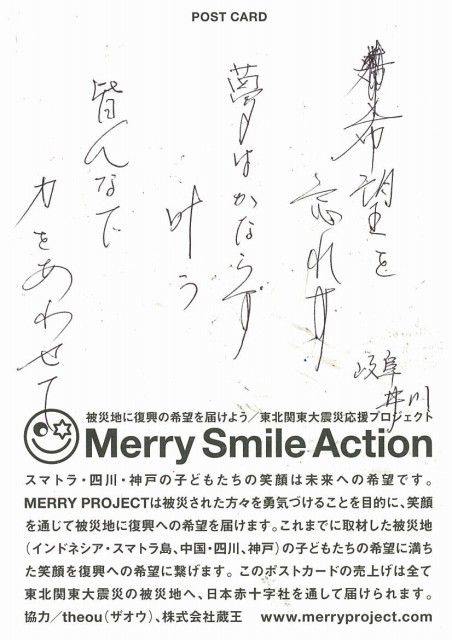 POST CARD
希望を
忘れず
夢はかならず
叶う
皆んなで
力をあわせて
岐阜
井川
被災地に復興の希望を届けよう/東北関東大震災応援プロジェクト
Merry Smile Action
スマトラ・四川・神戸の子どもたちの笑顔は未来への希望です。
MERRY PROJECTは被災された方々を勇気づけることを目的に、笑顔
を通じて被災地に復興への希望を届けます。これまでに取材した被災地
(インドネシア・スマトラ島、中国・四川、神戸)の子どもたちの希望に満ち
た笑顔を復興への希望に繋げます。このポストカードの売上げは全て
東北関東大震災の被災地へ、日本赤十字社を通して届けられます。
協力/theou(ザオウ)、株式会社蔵王 www.merryproject.com